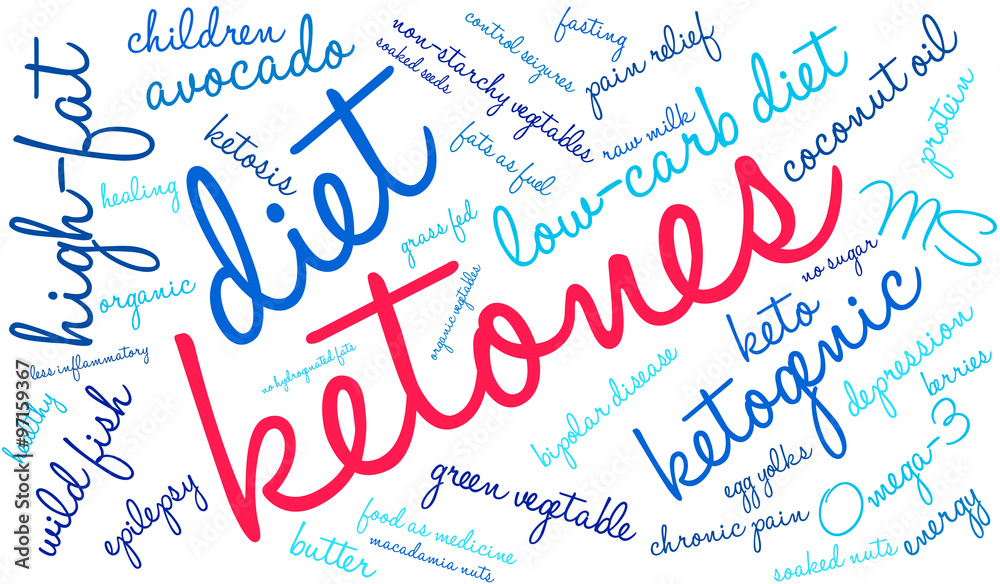 children
avocado
non-starchy vegetables
soaked seeds
control seizures
fasting
pain relief
coconut oil
high-fat
diet
ketosis
fats as fuel
raw milk
low-carb diet
protein
healing
grass fed
MS
organic
ketones
organic vegetables
no sugar
keto
ketogenic
less inflammatory
no hydrognated fats
bipolar disease
depression
berries
healthy
wild fish
epilepsy
green vegetable
egg yolks
Omega-3
butter
food as medicine
macadamia nuts
chronic pain
soaked nuts
energy
Adobe Stock | #97159367